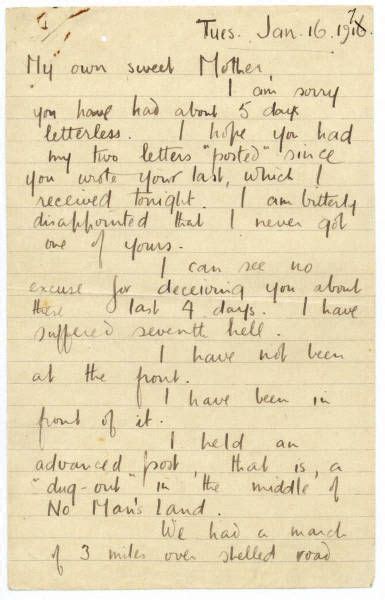 Tues. Jan. 16. 1917.
My own sweet Mother,
I am sorry
you have had about 5 days
letterless. I hope you had
my two letters "posted" since
you wrote your last, which I
received tonight. I am bitterly
disappointed that I never got
one of yours.
I can see no
excuse for deceiving you about
these last 4 days. I have
suffered seventh hell.
I have not been
at the front.
I have been in
front of it.
I held an
advanced post, that is, a
"dug-out" in the middle of
No Man's Land.
We had a march
of 3 miles over shelled road